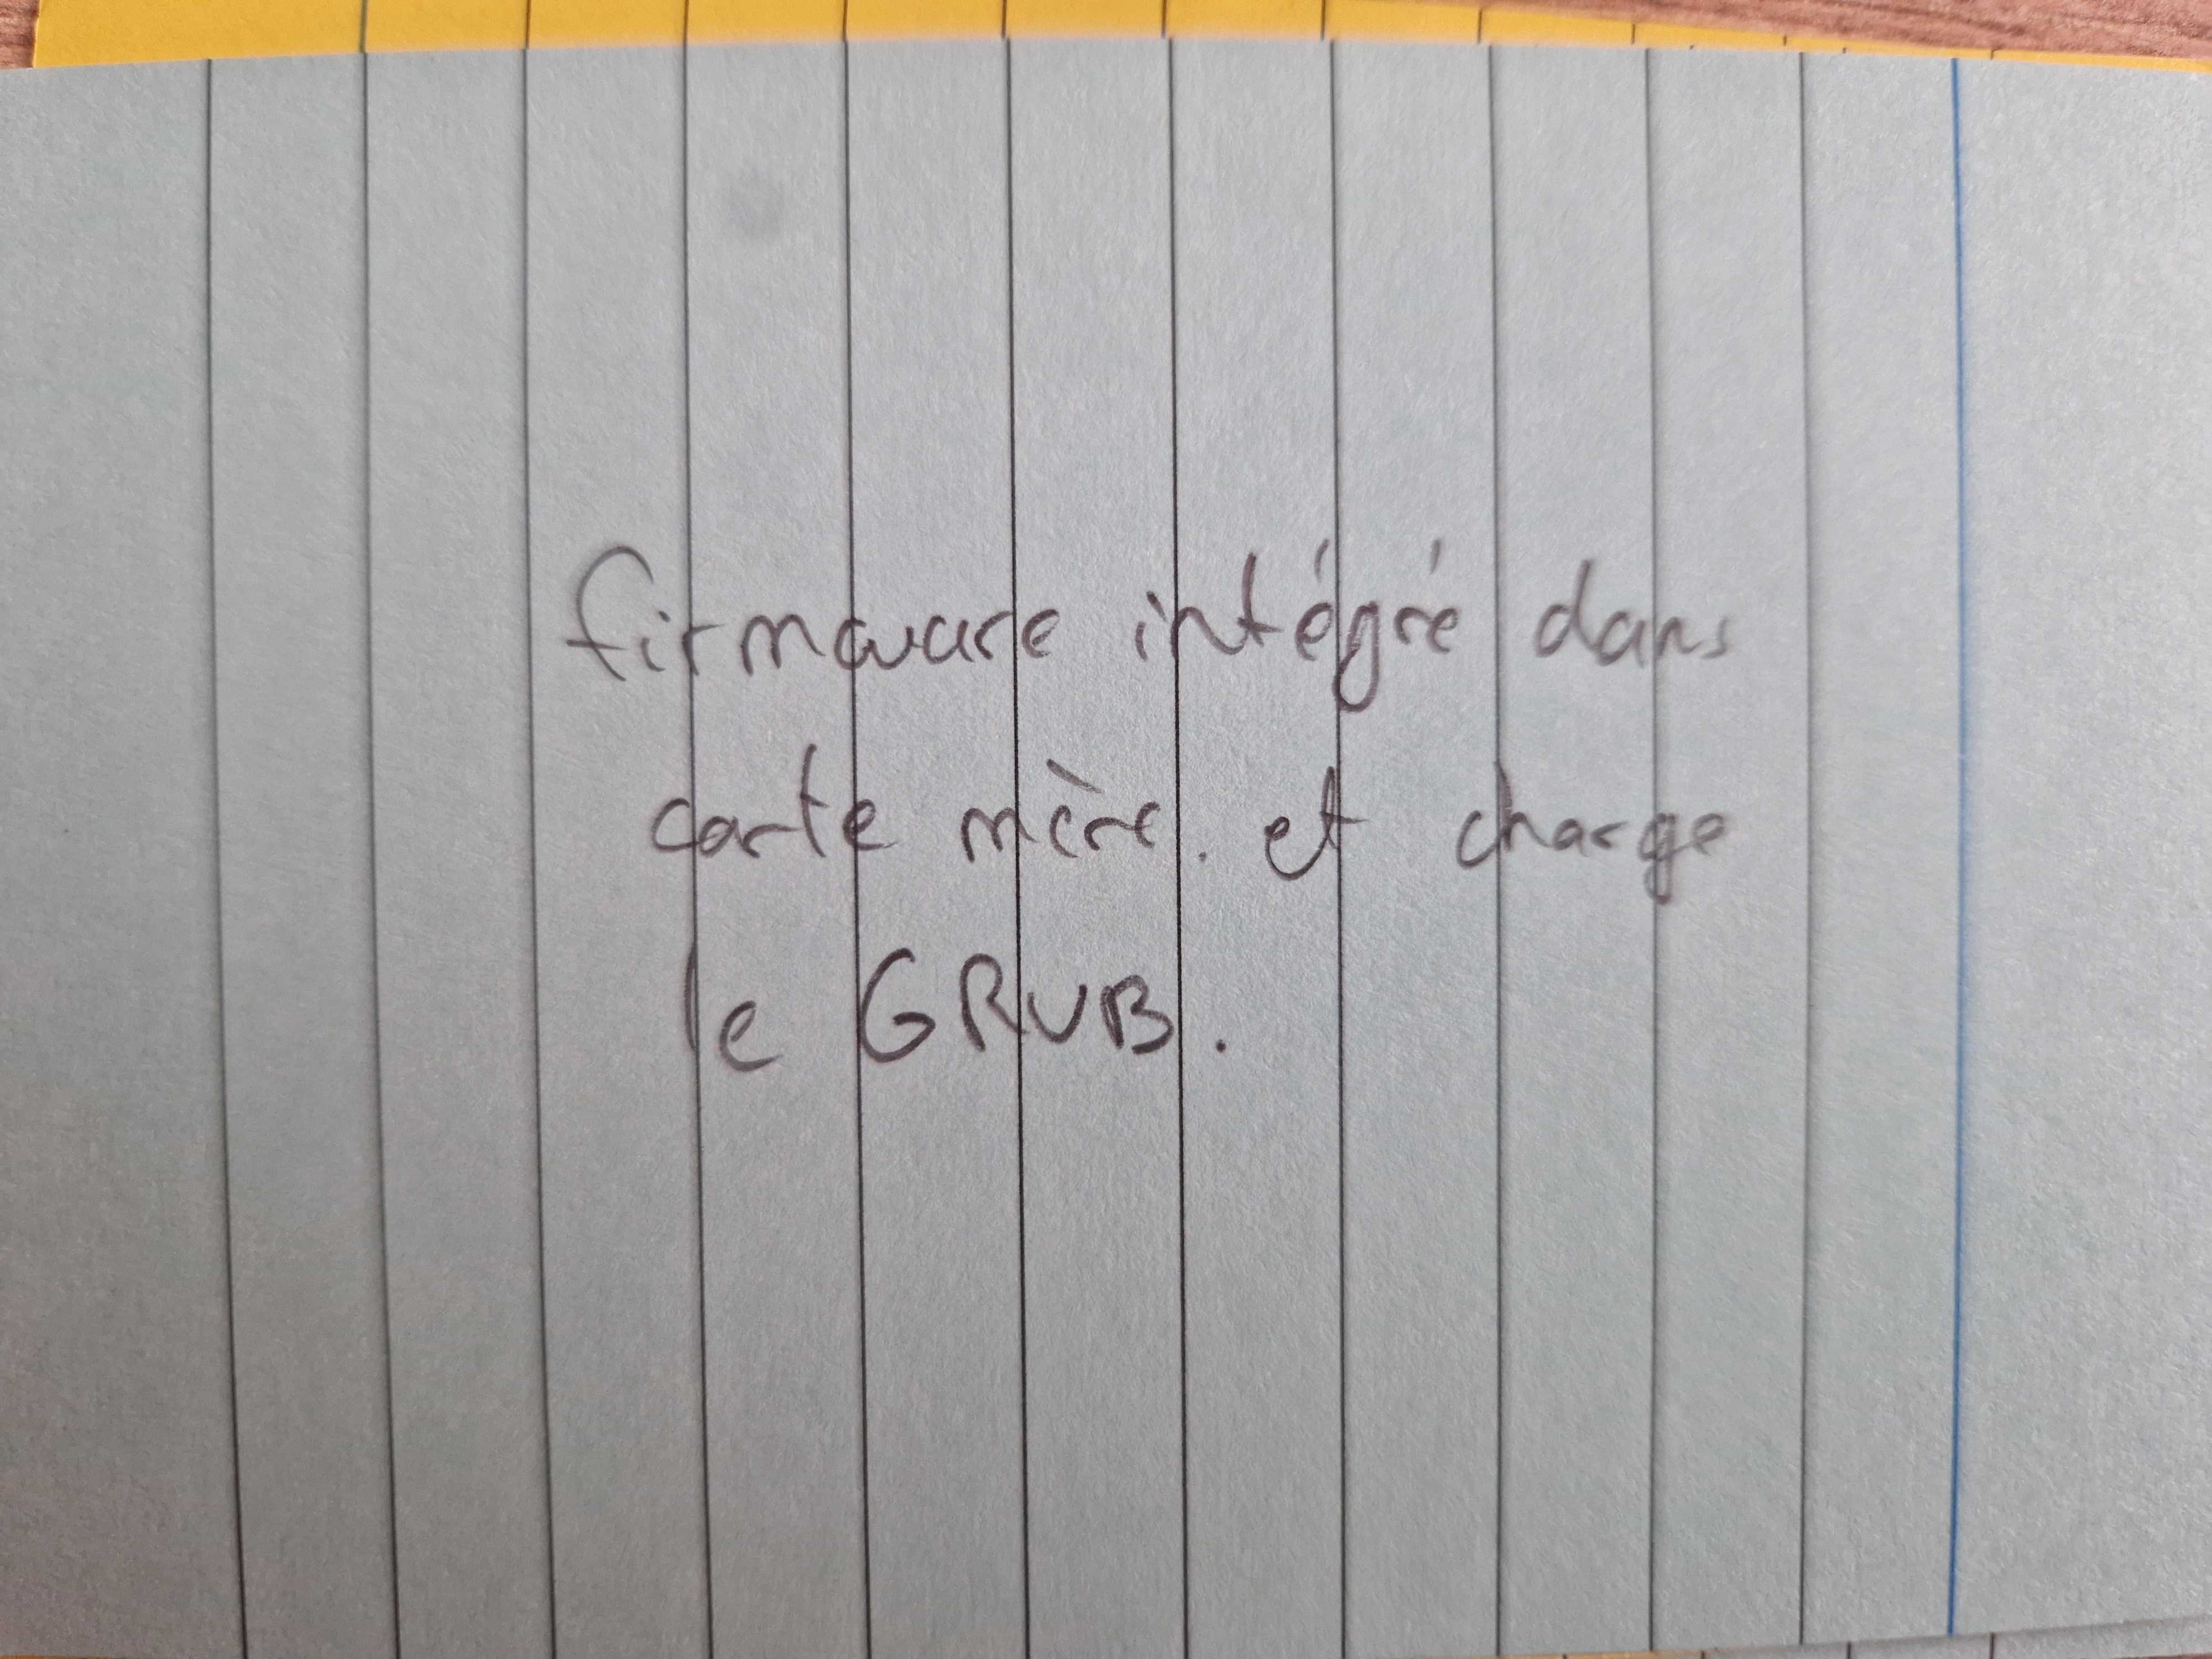 firmware intégré dans
carte mère. et charge
le GRUB.